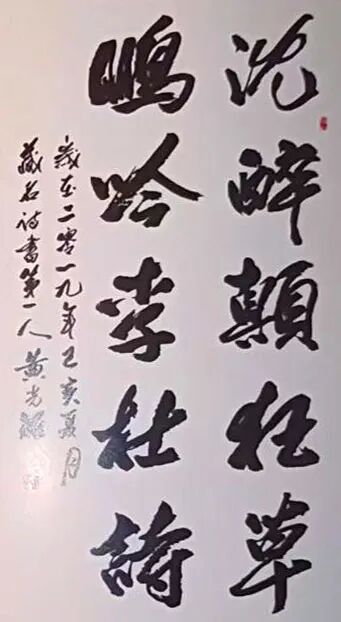 沈醉顛狂草
鵬吟李杜詩
歲在二零一九年己亥夏月
藏名詩書第一人黄光